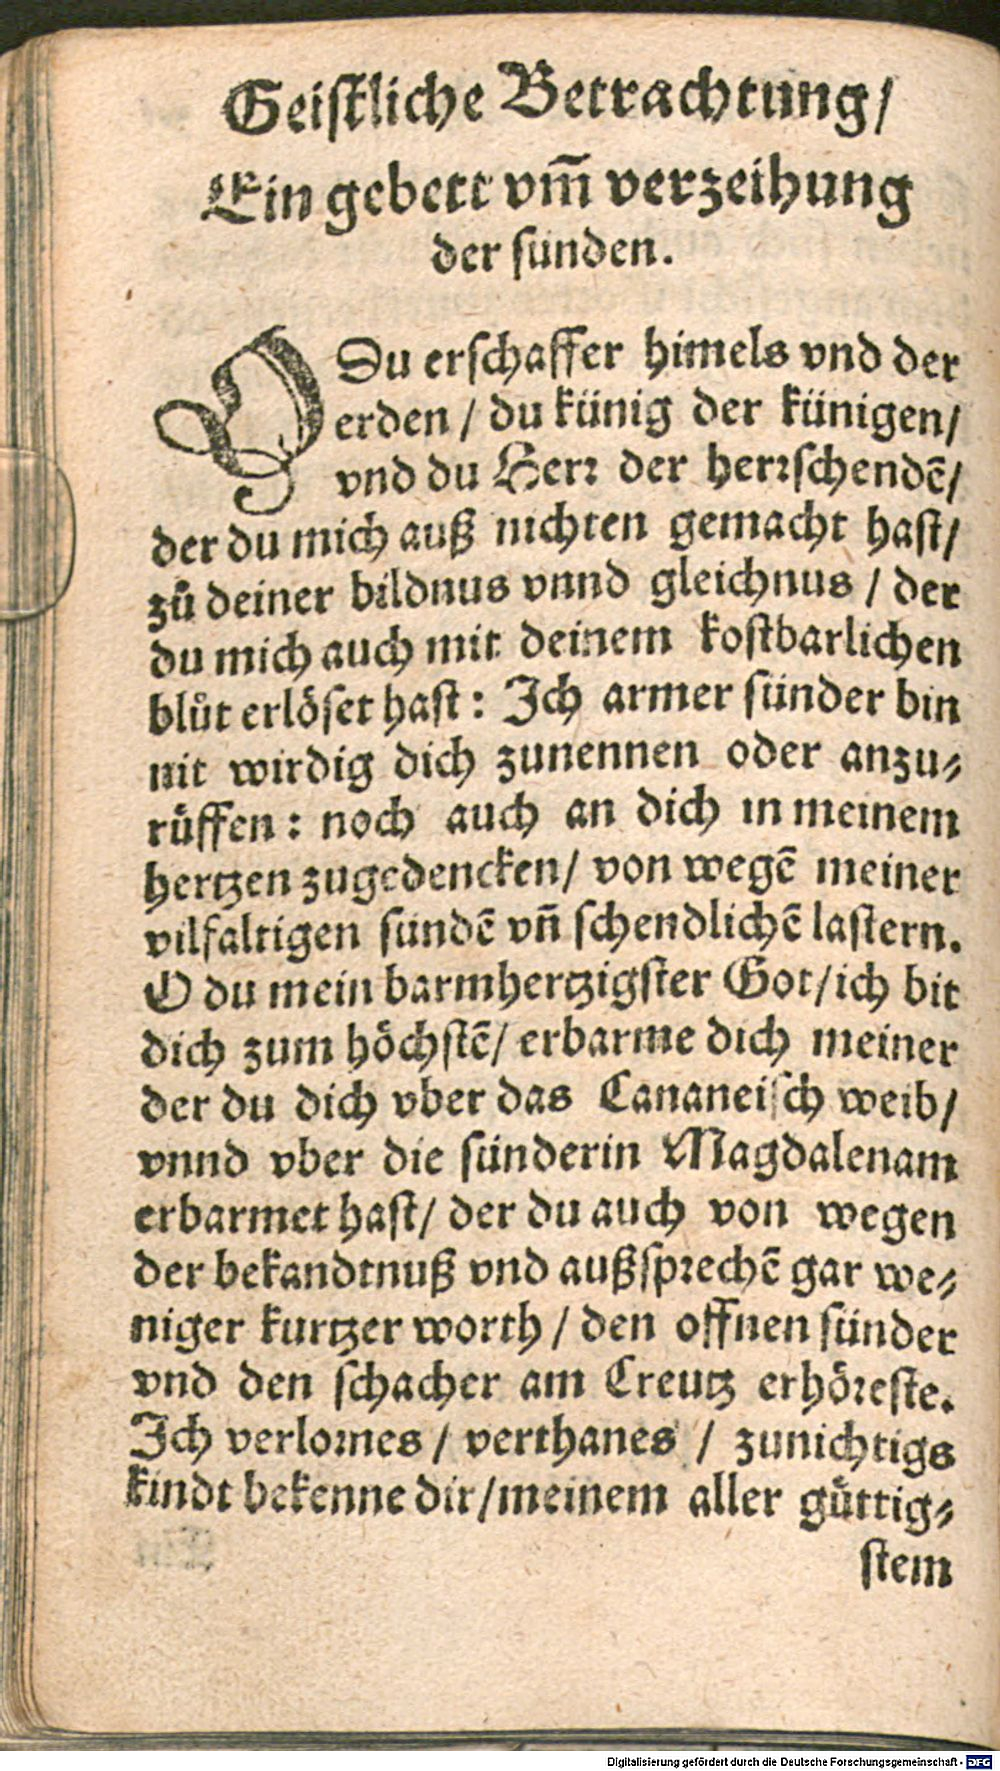 Geistliche Betrachtung/
Ein gebett vm̃ verzeihung
der sünden.
O Du erschaffer himels vnd der
erden / du künig der künigen/
vnd du Herr der herrschendẽ/
der du mich auß nichten gemacht hast/
zů deiner bildnus vnnd gleichnus / der
du mich auch mit deinem kostbarlichen
blůt erlöset hast: Ich armer sünder bin
nit wirdig dich zunennen oder anzu⸗
rüffen: noch auch an dich in meinem
hertzen zugedencken/ von wegẽ meiner
vilfaltigen sündẽ vñ schendlichẽ lastern.
O du mein barmhertzigster Got/ich bit
dich zum höchstẽ/ erbarme dich meiner
der du dich vber das Cananeisch weib/
vnnd vber die sünderin Magdalenam
erbarmet hast/ der du auch von wegen
der bekandtnuß vnd außsprechẽ gar we⸗
niger kurtzer worth / den offnen sünder
vnd den schacher am Creutz erhöreste.
Ich verlornes / verthanes / zunichtigs
kindt bekenne dir/meinem aller güttig⸗
stem
Digitalisierung gefördert durch die Deutsche Forschungsgemeinschaft - DFG